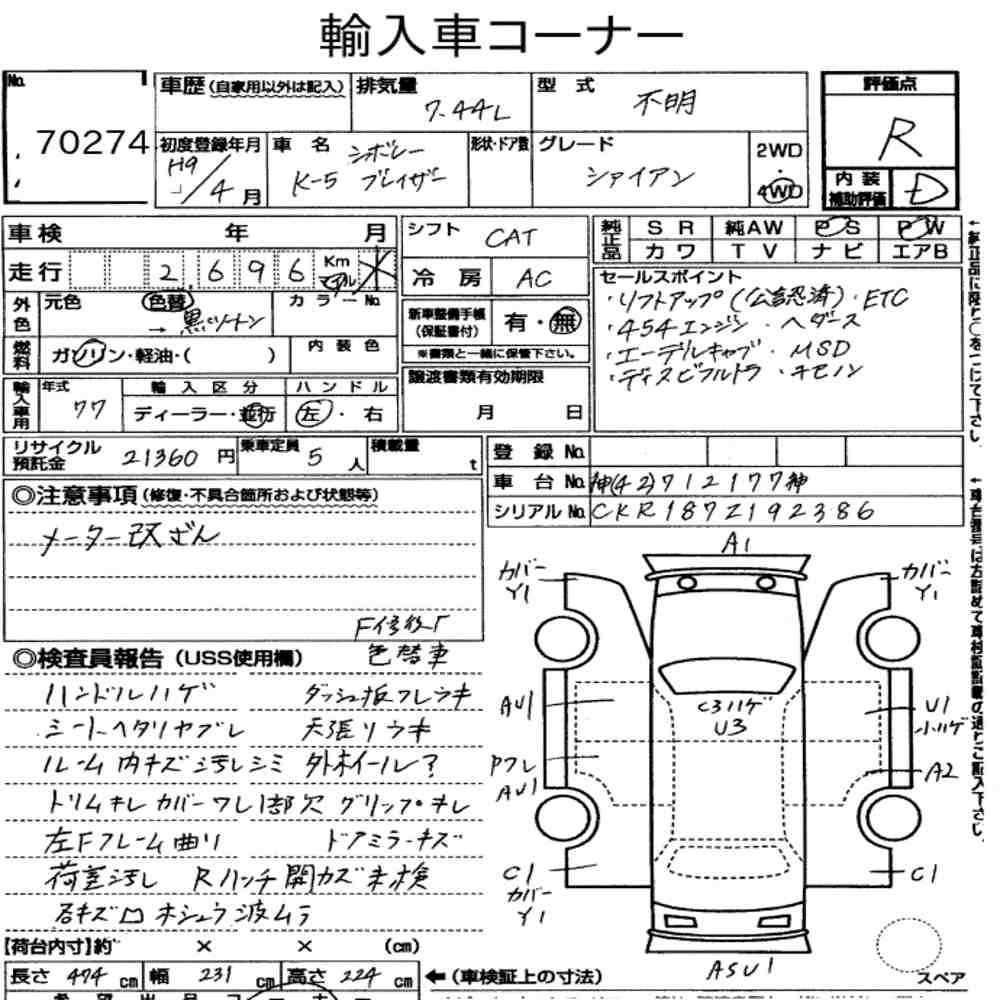 輸入車コーナー
No. 70274
車歴(自家用以外は記入) 排気量 7.44L 型式 不明 評価点 R
初度登録年月 H9/4月 車名 シボレー K-5 ブレイザー 形状・ドア数 グレード シャイアン 2WD 4WD
内装補助評価 D
車検 年 月 シフト CAT 純正品 SR 純AW PS PW
カワ TV ナビ エアB
走行 2,696 Km マイル 冷房 AC セールスポイント
外色 元色 色替 → 黒ツートン カラーNo. 新車整備手帳(保証書付) 有・無
・リフトアップ(公認済)・ETC
・454エンジン・ヘダース
・エーデルキャブ・MSD
・ディスビフルトラ・キセノン
※書類と一緒に保管下さい。
燃料 ガソリン・軽油・( ) 内装色 譲渡書類有効期限
輸入車用 年式 77 輸入区分 ディーラー・並行 ハンドル 左・右 月 日
リサイクル預託金 21360円 乗車定員 5人 積載量 t 登録No.
車台No. 神(42)712177神
シリアルNo. CKR187Z192386
◎注意事項(修復・不具合箇所および状態等)
メーター改ざん
F修後「
◎検査員報告(USS使用欄) 色替車
ハンドルハゲ ダッシュ板フレウキ
シートヘタリヤブレ 天張リウキ
ルーム内キズ汚レシミ 外ホイール?
トリムキレ カバーワレ1部欠 グリップキレ
左Fフレーム曲リ ドアミラーキズ
荷室汚レ Rハッチ開カズ未検
石キズロ ホシュウ波ムラ
A1
カバーY1 カバーY1
AU1 C3ハゲ U3 U1 小ハゲ
Pフレ AU1 A2
C1 カバーY1 C1
ASU1 スペア
【荷台内寸】約 × × (cm)
長さ 474cm 幅 231cm 高さ 224cm ←(車検証上の寸法)